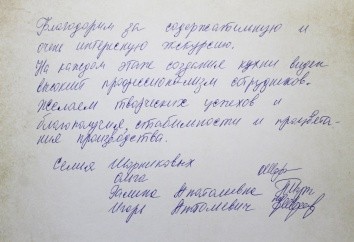 Благодарим за содержательную и
очень интересную экскурсию.
На каждом этапе создания кухни виден
высокий профессионализм сотрудников.
Желаем творческих успехов и
благополучия, стабильности и процвета-
ния производства.
Семья
Ольга
Галина Анатольевна
Игорь Анатольевич